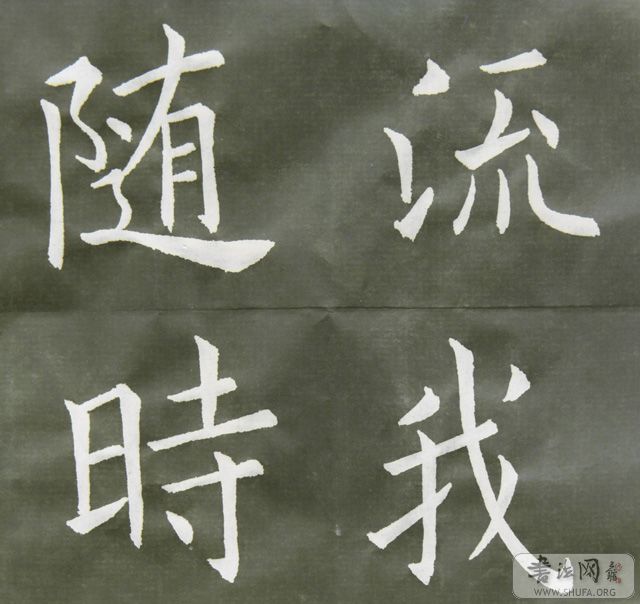 流我
随時
书法网
WWW.SHUFA.ORG